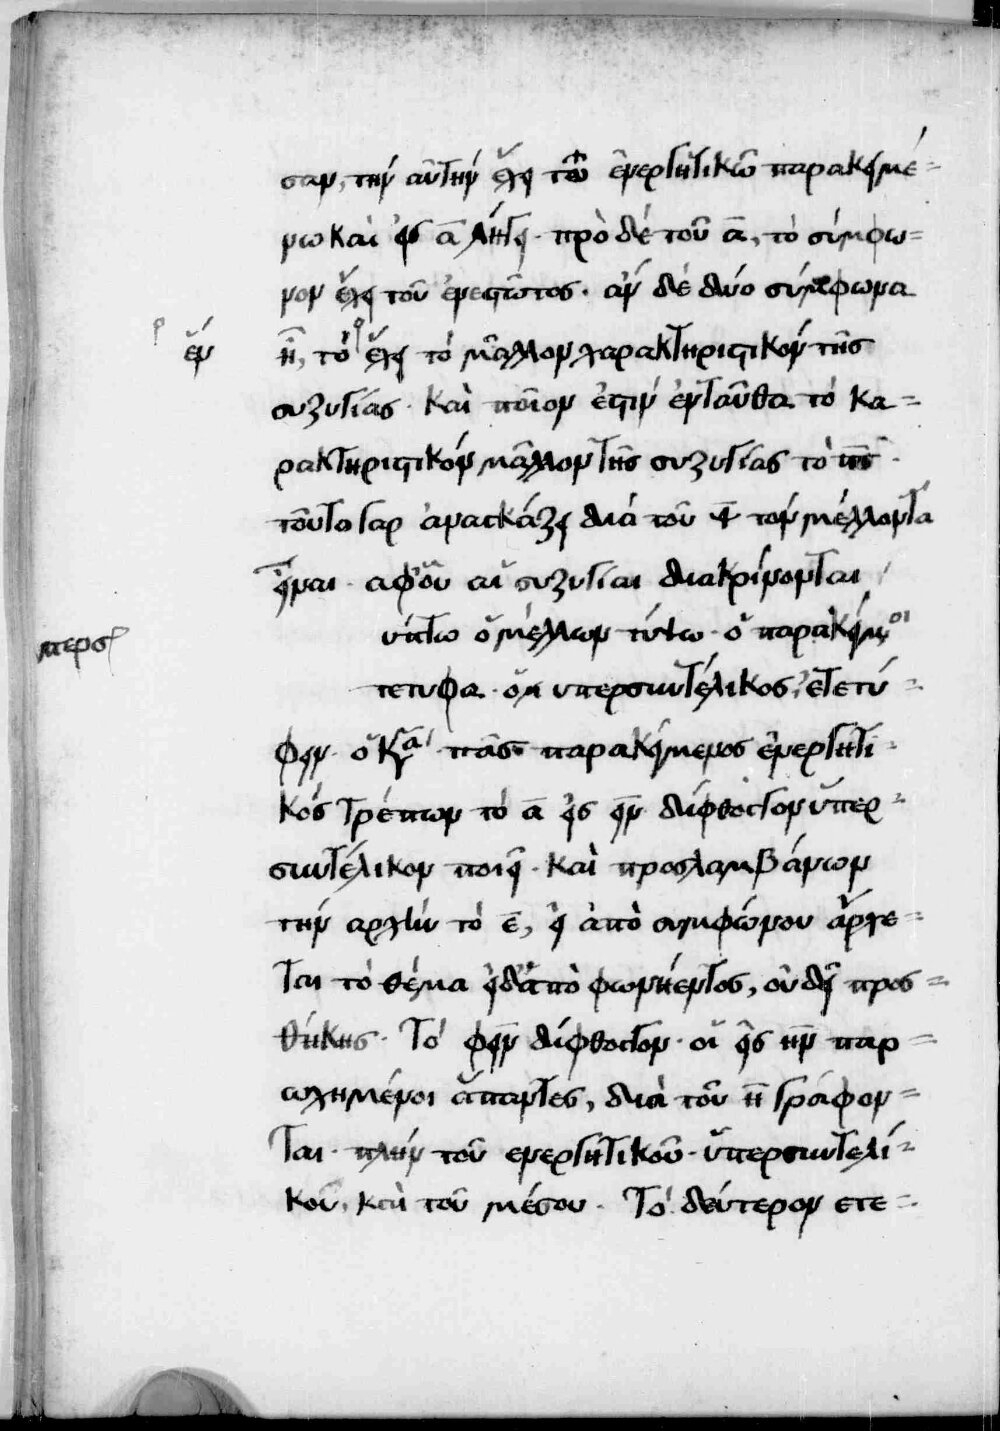 σαν, τὴν αὐτὴν ἔχει τῶ ἐνεργητικῶ παρακειμέ=
νω καὶ εἰς α λήγει. πρὸ δὲ τοῦ α, τὸ σύμφω=
νον ἔχει τοῦ ἐνεστῶτος. ἂν δὲ δύο σύμφωνα
ἔν
ῆ, τὸ ἔχει τὸ μᾶλλον χαρακτηριστικὸν τῆς
συζυγίας. καὶ ποῖον ἐστὶν ἐνταῦθα τὸ χα=
ρακτηριστικὸν μᾶλλον τῆς συζυγίας τὸ π
τοῦτο γαρ ἀναγκάζει διὰ τοῦ ψ τὸν μέλλοντα
εἶναι. αφοὗ αἱ συζυγίαι διακρίνονται
ύπτω ὁ μέλλων τύψω. ὁ παρακείμενοι
τετυφα. ὁ υπερσυντέλικος, ἐτετύ=
φειν. ὁ κα πᾶς παρακείμενος ἐνεργητι=
κὸς τρέπων τὸ α εἰς ειν δίφθογγον ὑπερ=
συντέλικον ποιεῖ. καὶ προσλαμβάνων
τὴν αρχὴν τὸ ε, εἰ ἀπὸ συμφώνου ἄρχε=
ται τὸ θέμα εἰδἀπὸ φωνήεντος, οὐ δεῖ προσ=
θήκης. Τὸ φειν δίφθογγον. οἱ εἰς ην παρ=
ωχημένοι ἅπαντες, διὰ τοῦ η γράφον=
ται. πλὴν τοῦ ενεργητικοῦ. ὑπερσυντελί=
κοῦ, καὶ τοῦ μέσου. Τὸ δεύτερον ετε=